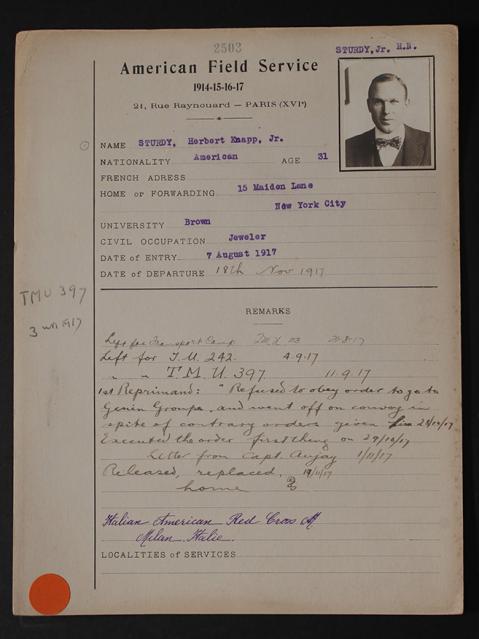 2503
STURDY, Jr. H.N.
American Field Service
1914-15-16-17
21, Rue Raynouard — PARIS (XVIe)
NAME STURDY, Herbert Knapp, Jr.
NATIONALITY American AGE 31
FRENCH ADRESS
HOME or FORWARDING 15 Maiden Lane
New York City
UNIVERSITY Brown
CIVIL OCCUPATION Jeweler
DATE of ENTRY 7 August 1917
DATE of DEPARTURE 18th Nov 1917
TMU 397
3 1917
REMARKS
Left for Transport Camp 20-8-17
Left for T.U. 242. 4-9-17
" " T.M.U 397 11-9-17
1st Reprimand: "Refused to obey order to go to
Genin Groupe, and went off on convoy in
spite of contrary orders given 28/10/17
Executed the order first thing on 29/10/17
Letter from Capt. 1/11/17
Released, replaced. 19/11/17
home
Italian American Red Cross
Milan Italie.
LOCALITIES of SERVICES